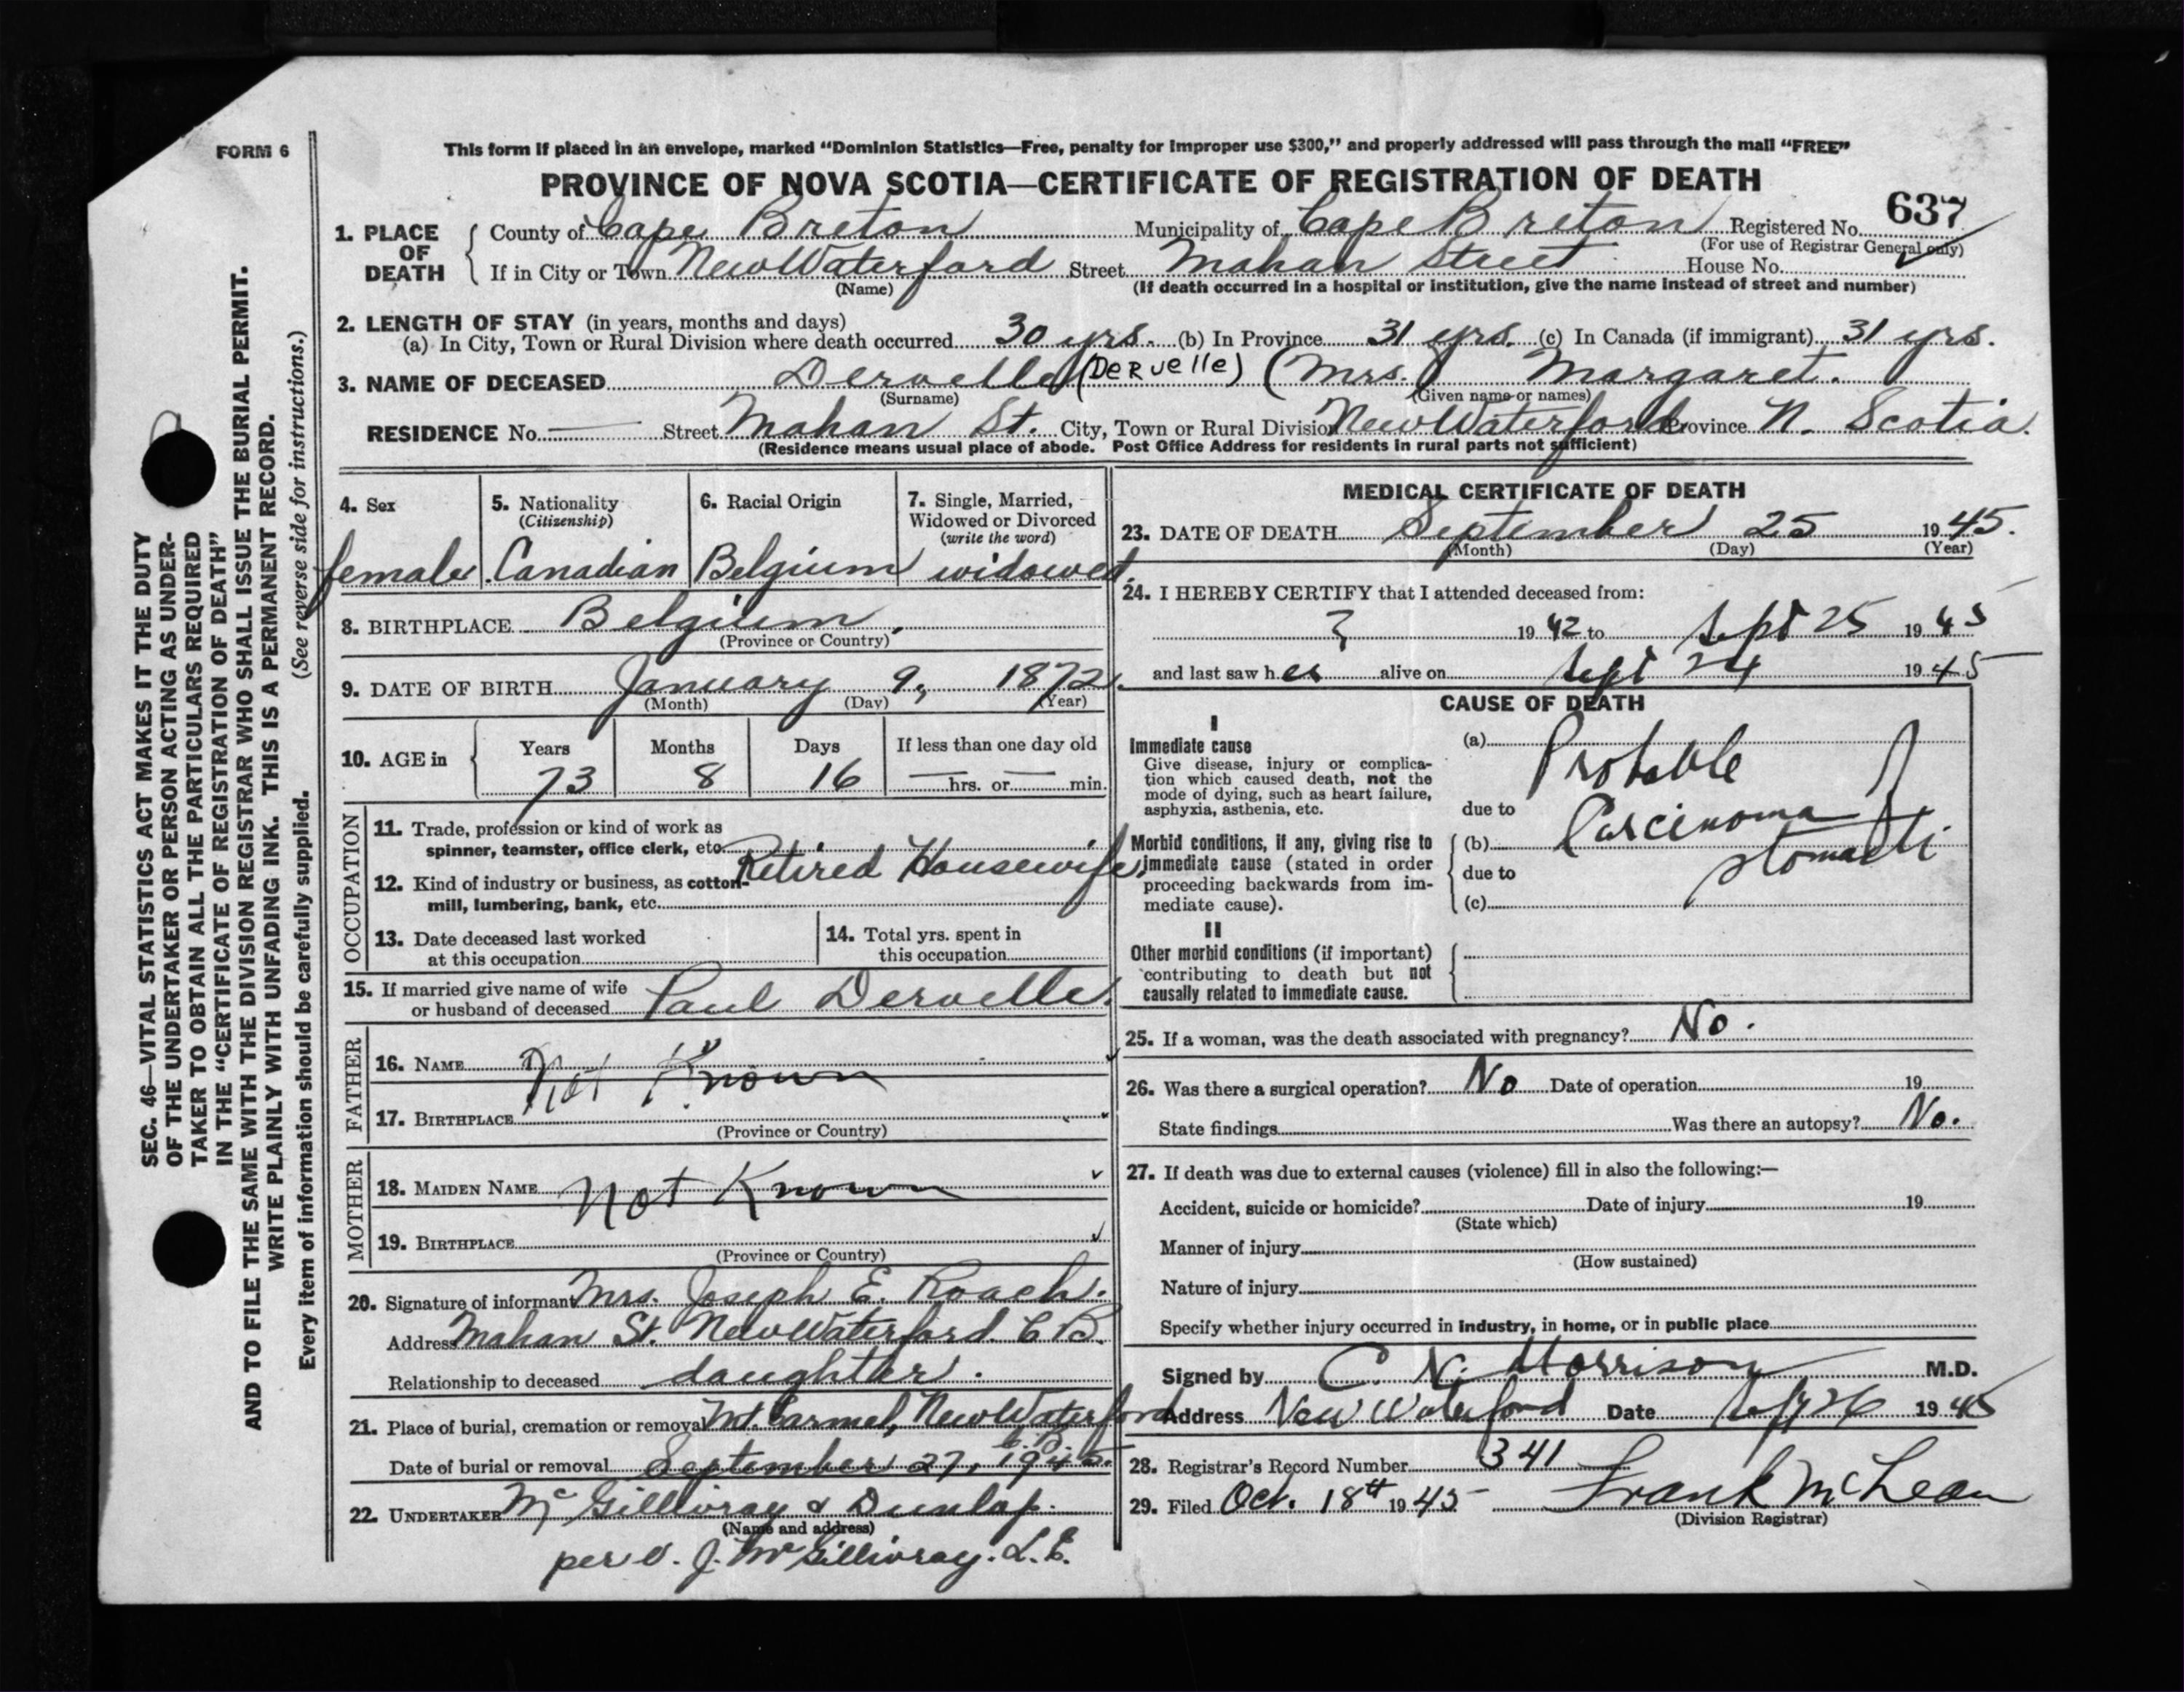 FORM 6
This form if placed in an envelope, marked “Dominion Statistics—Free, penalty for improper use $300,” and properly addressed will pass through the mail “FREE”
PROVINCE OF NOVA SCOTIA—CERTIFICATE OF REGISTRATION OF DEATH
637
1. PLACE OF DEATH
County of Cape Breton Municipality of Cape Breton Registered No.
(For use of Registrar General only)
If in City or Town New Waterford Street Mahan Street House No.
(Name) (If death occurred in a hospital or institution, give the name instead of street and number)
2. LENGTH OF STAY (in years, months and days)
(a) In City, Town or Rural Division where death occurred 30 yrs. (b) In Province 31 yrs. (c) In Canada (if immigrant) 31 yrs.
3. NAME OF DECEASED Dervelle (DeRvelle) (Mrs.) Margaret.
(Surname) (Given name or names)
RESIDENCE No. — Street Mahan St. City, Town or Rural Division New Waterford Province N. Scotia.
(Residence means usual place of abode. Post Office Address for residents in rural parts not sufficient)
4. Sex
female
5. Nationality
(Citizenship)
Canadian
6. Racial Origin
Belgium
7. Single, Married,
Widowed or Divorced
(write the word)
widowed.
8. BIRTHPLACE Belgium.
(Province or Country)
9. DATE OF BIRTH January 9, 1872.
(Month) (Day) (Year)
10. AGE in
Years Months Days If less than one day old
73 8 16 — hrs. or — min.
OCCUPATION
11. Trade, profession or kind of work as
spinner, teamster, office clerk, etc.
Retired Housewife.
12. Kind of industry or business, as cotton-
mill, lumbering, bank, etc.
13. Date deceased last worked
at this occupation
14. Total yrs. spent in
this occupation
15. If married give name of wife
or husband of deceased Paul Dervelle.
FATHER
16. NAME Not Known
17. BIRTHPLACE
(Province or Country)
MOTHER
18. MAIDEN NAME Not Known
19. BIRTHPLACE
(Province or Country)
20. Signature of informant Mrs. Joseph E. Roach.
Address Mahan St. New Waterford C B.
Relationship to deceased daughter.
21. Place of burial, cremation or removal Mt. Carmel, New Waterford
C.B.
Date of burial or removal September 27, 1945.
22. UNDERTAKER McGillivray & Dunlap.
(Name and address)
per J. McGillivray. L.E.
MEDICAL CERTIFICATE OF DEATH
23. DATE OF DEATH September 25 1945.
(Month) (Day) (Year)
24. I HEREBY CERTIFY that I attended deceased from:
? 1942 to Sept 25 1945
and last saw her alive on Sept 24 1945
CAUSE OF DEATH
I
Immediate cause
Give disease, injury or complica-
tion which caused death, not the
mode of dying, such as heart failure,
asphyxia, asthenia, etc.
Morbid conditions, if any, giving rise to
immediate cause (stated in order
proceeding backwards from im-
mediate cause).
II
Other morbid conditions (if important)
contributing to death but not
causally related to immediate cause.
(a) Probable
due to
(b) Carcinoma of
stomach
due to
(c)
25. If a woman, was the death associated with pregnancy? No.
26. Was there a surgical operation? No Date of operation 19
State findings Was there an autopsy? No.
27. If death was due to external causes (violence) fill in also the following:—
Accident, suicide or homicide? Date of injury 19
(State which)
Manner of injury
(How sustained)
Nature of injury
Specify whether injury occurred in industry, in home, or in public place
Signed by C. N. Morrison M.D.
Address New Waterford Date Sept 26 1945
28. Registrar's Record Number 341
29. Filed Oct. 18th 1945 Frank McLean
(Division Registrar)
SEC. 46—VITAL STATISTICS ACT MAKES IT THE DUTY
OF THE UNDERTAKER OR PERSON ACTING AS UNDER-
TAKER TO OBTAIN ALL THE PARTICULARS REQUIRED
IN THE “CERTIFICATE OF REGISTRATION OF DEATH”
AND TO FILE THE SAME WITH THE DIVISION REGISTRAR WHO SHALL ISSUE THE BURIAL PERMIT.
WRITE PLAINLY WITH UNFADING INK. THIS IS A PERMANENT RECORD.
Every item of information should be carefully supplied. (See reverse side for instructions.)